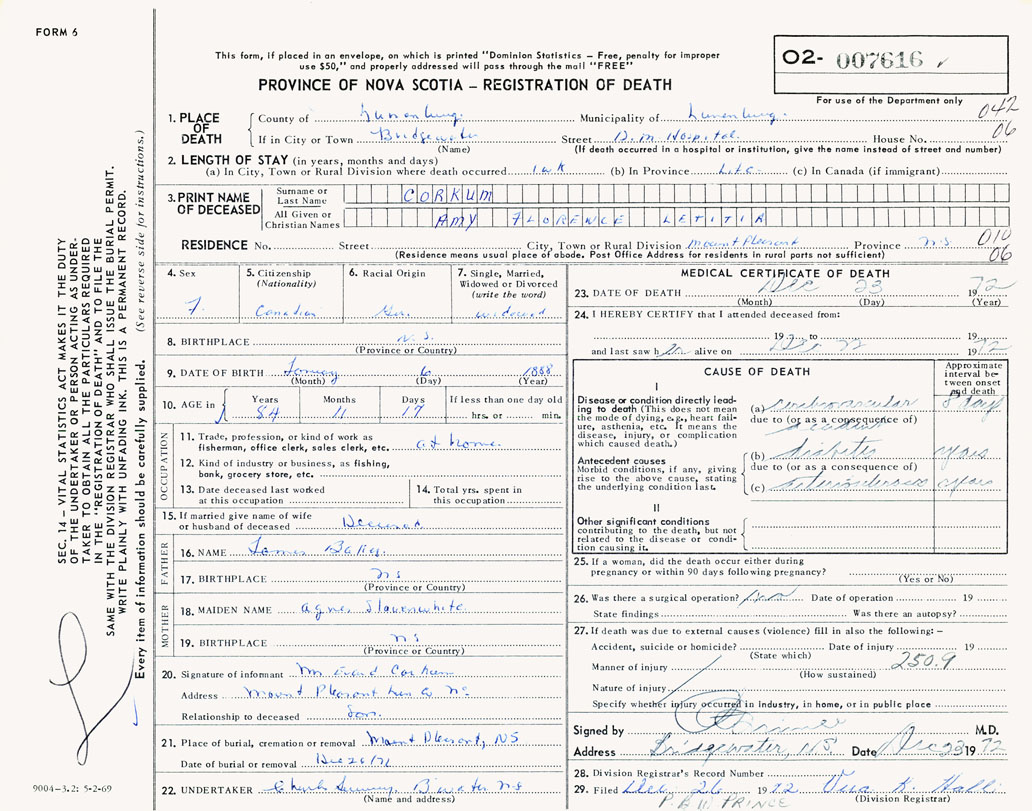 FORM 6
This form, if placed in an envelope, on which is printed "Dominion Statistics – Free, penalty for improper
use $50," and properly addressed will pass through the mail "FREE"
PROVINCE OF NOVA SCOTIA – REGISTRATION OF DEATH
O2- 007616
For use of the Department only
042
06
1. PLACE OF DEATH
County of Lunenburg. Municipality of Lunenburg.
If in City or Town Bridgewater Street D.M. Hospital. House No.
(Name) (If death occurred in a hospital or institution, give the name instead of street and number)
2. LENGTH OF STAY (in years, months and days)
(a) In City, Town or Rural Division where death occurred 1 wk (b) In Province Life (c) In Canada (if immigrant)
3. PRINT NAME OF DECEASED
Surname or Last Name CORKUM
All Given or Christian Names AMY FLORENCE LETITIA
RESIDENCE No. Street City, Town or Rural Division Mount Pleasant Province N.S.
010
06
(Residence means usual place of abode. Post Office Address for residents in rural parts not sufficient)
4. Sex
F.
5. Citizenship (Nationality)
Canadian
6. Racial Origin
Ger.
7. Single, Married, Widowed or Divorced (write the word)
widowed
8. BIRTHPLACE N.S.
(Province or Country)
9. DATE OF BIRTH 6 1888
(Month) (Day) (Year)
10. AGE in
Years Months Days If less than one day old
84 11 17 hrs. or min.
OCCUPATION
11. Trade, profession, or kind of work as
fisherman, office clerk, sales clerk, etc. at home.
12. Kind of industry or business, as fishing,
bank, grocery store, etc.
13. Date deceased last worked
at this occupation
14. Total yrs. spent in
this occupation
15. If married give name of wife
or husband of deceased Deceased
FATHER
16. NAME James
17. BIRTHPLACE NS
(Province or Country)
MOTHER
18. MAIDEN NAME Agnes Slauenwhite
19. BIRTHPLACE NS
(Province or Country)
20. Signature of informant Corkum
Address Mount Pleasant Lun Co NS
Relationship to deceased Son.
21. Place of burial, cremation or removal Mount Pleasant, NS
Date of burial or removal Dec 26/71
22. UNDERTAKER B'water NS
(Name and address)
MEDICAL CERTIFICATE OF DEATH
23. DATE OF DEATH Dec 23 1972
(Month) (Day) (Year)
24. I HEREBY CERTIFY that I attended deceased from:
19 to 19
and last saw her alive on Dec 22 1972
CAUSE OF DEATH
Approximate interval between onset and death
I
Disease or condition directly leading to death (This does not mean the mode of dying, e.g., heart failure, asthenia, etc. It means the disease, injury, or complication which caused death.)
(a) cerebrovascular accident 8 days
due to (or as a consequence of)
Antecedent causes
Morbid conditions, if any, giving rise to the above cause, stating the underlying condition last.
(b) diabetes years
due to (or as a consequence of)
(c) arteriosclerosis years
II
Other significant conditions
contributing to the death, but not related to the disease or condition causing it.
25. If a woman, did the death occur either during
pregnancy or within 90 days following pregnancy?
(Yes or No)
26. Was there a surgical operation? Date of operation 19
State findings Was there an autopsy?
27. If death was due to external causes (violence) fill in also the following: –
Accident, suicide or homicide? Date of injury 19
(State which)
250.9
Manner of injury
(How sustained)
Nature of injury
Specify whether injury occurred in industry, in home, or in public place
Signed by Prince M.D.
Address Bridgewater, N.S. Date Dec 23 1972
28. Division Registrar's Record Number
29. Filed Dec. 26 1972 Vera K. Hall
(Division Registrar)
P E W. PRINCE
SEC. 14 – VITAL STATISTICS ACT MAKES IT THE DUTY
OF THE UNDERTAKER OR PERSON ACTING AS UNDER-
TAKER TO OBTAIN ALL THE PARTICULARS REQUIRED
IN THE "REGISTRATION OF DEATH" AND TO FILE THE
SAME WITH THE DIVISION REGISTRAR WHO SHALL ISSUE THE BURIAL PERMIT.
WRITE PLAINLY WITH UNFADING INK. THIS IS A PERMANENT RECORD.
Every item of information should be carefully supplied. (See reverse side for instructions.)
9004–3.2: 5-2-69